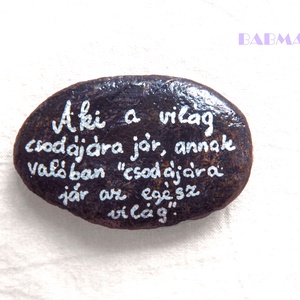 BABMA
Aki a világ
csodájára jár, annak
valóban "csodájára
jár az egész
világ".